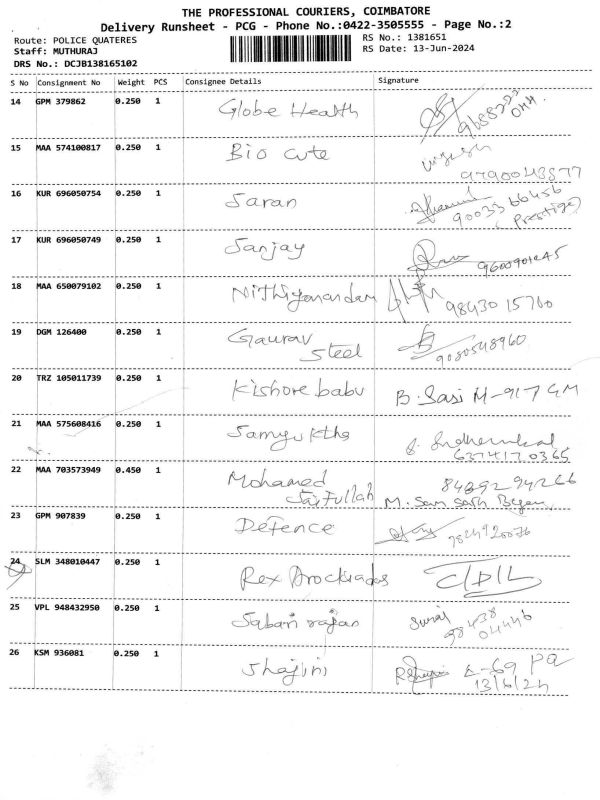 THE PROFESSIONAL COURIERS, COIMBATORE
Delivery Runsheet - PCG - Phone No.:0422-3505555 - Page No.:2
Route: POLICE QUATERES RS No.: 1381651
Staff: MUTHURAJ RS Date: 13-Jun-2024
DRS No.: DCJB138165102
S No Consignment No Weight PCS Consignee Details Signature
14 GPM 379862 0.250 1 Globe Health
15 MAA 574100817 0.250 1 Bio cute
16 KUR 696050754 0.250 1 Saran 90033 66456
(Prestige)
17 KUR 696050749 0.250 1 Sanjay
18 MAA 650079102 0.250 1 Nithiyanandam
19 DGM 126400 0.250 1 Gaurav
Steel 9080548960
20 TRZ 105011739 0.250 1 Kishore babu B. Sasi M-917 GM
21 MAA 575608416 0.250 1 Samyuktha
637417 0365
22 MAA 703573949 0.450 1 Mohamed
Saifullah M.
23 GPM 907839 0.250 1 Defence
24 SLM 348010447 0.250 1 Rex
25 VPL 948432950 0.250 1 Sabari rajan Suraj
98438
04446
26 KSM 936081 0.250 1 Shajini
13/6/24